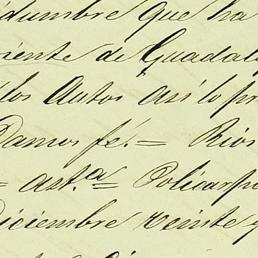 idumbre que ha
riente de Guadal
los Autos así lo pr
Damos fé.= Rios
= ast.a= Policarpo
Diciembre veinte y